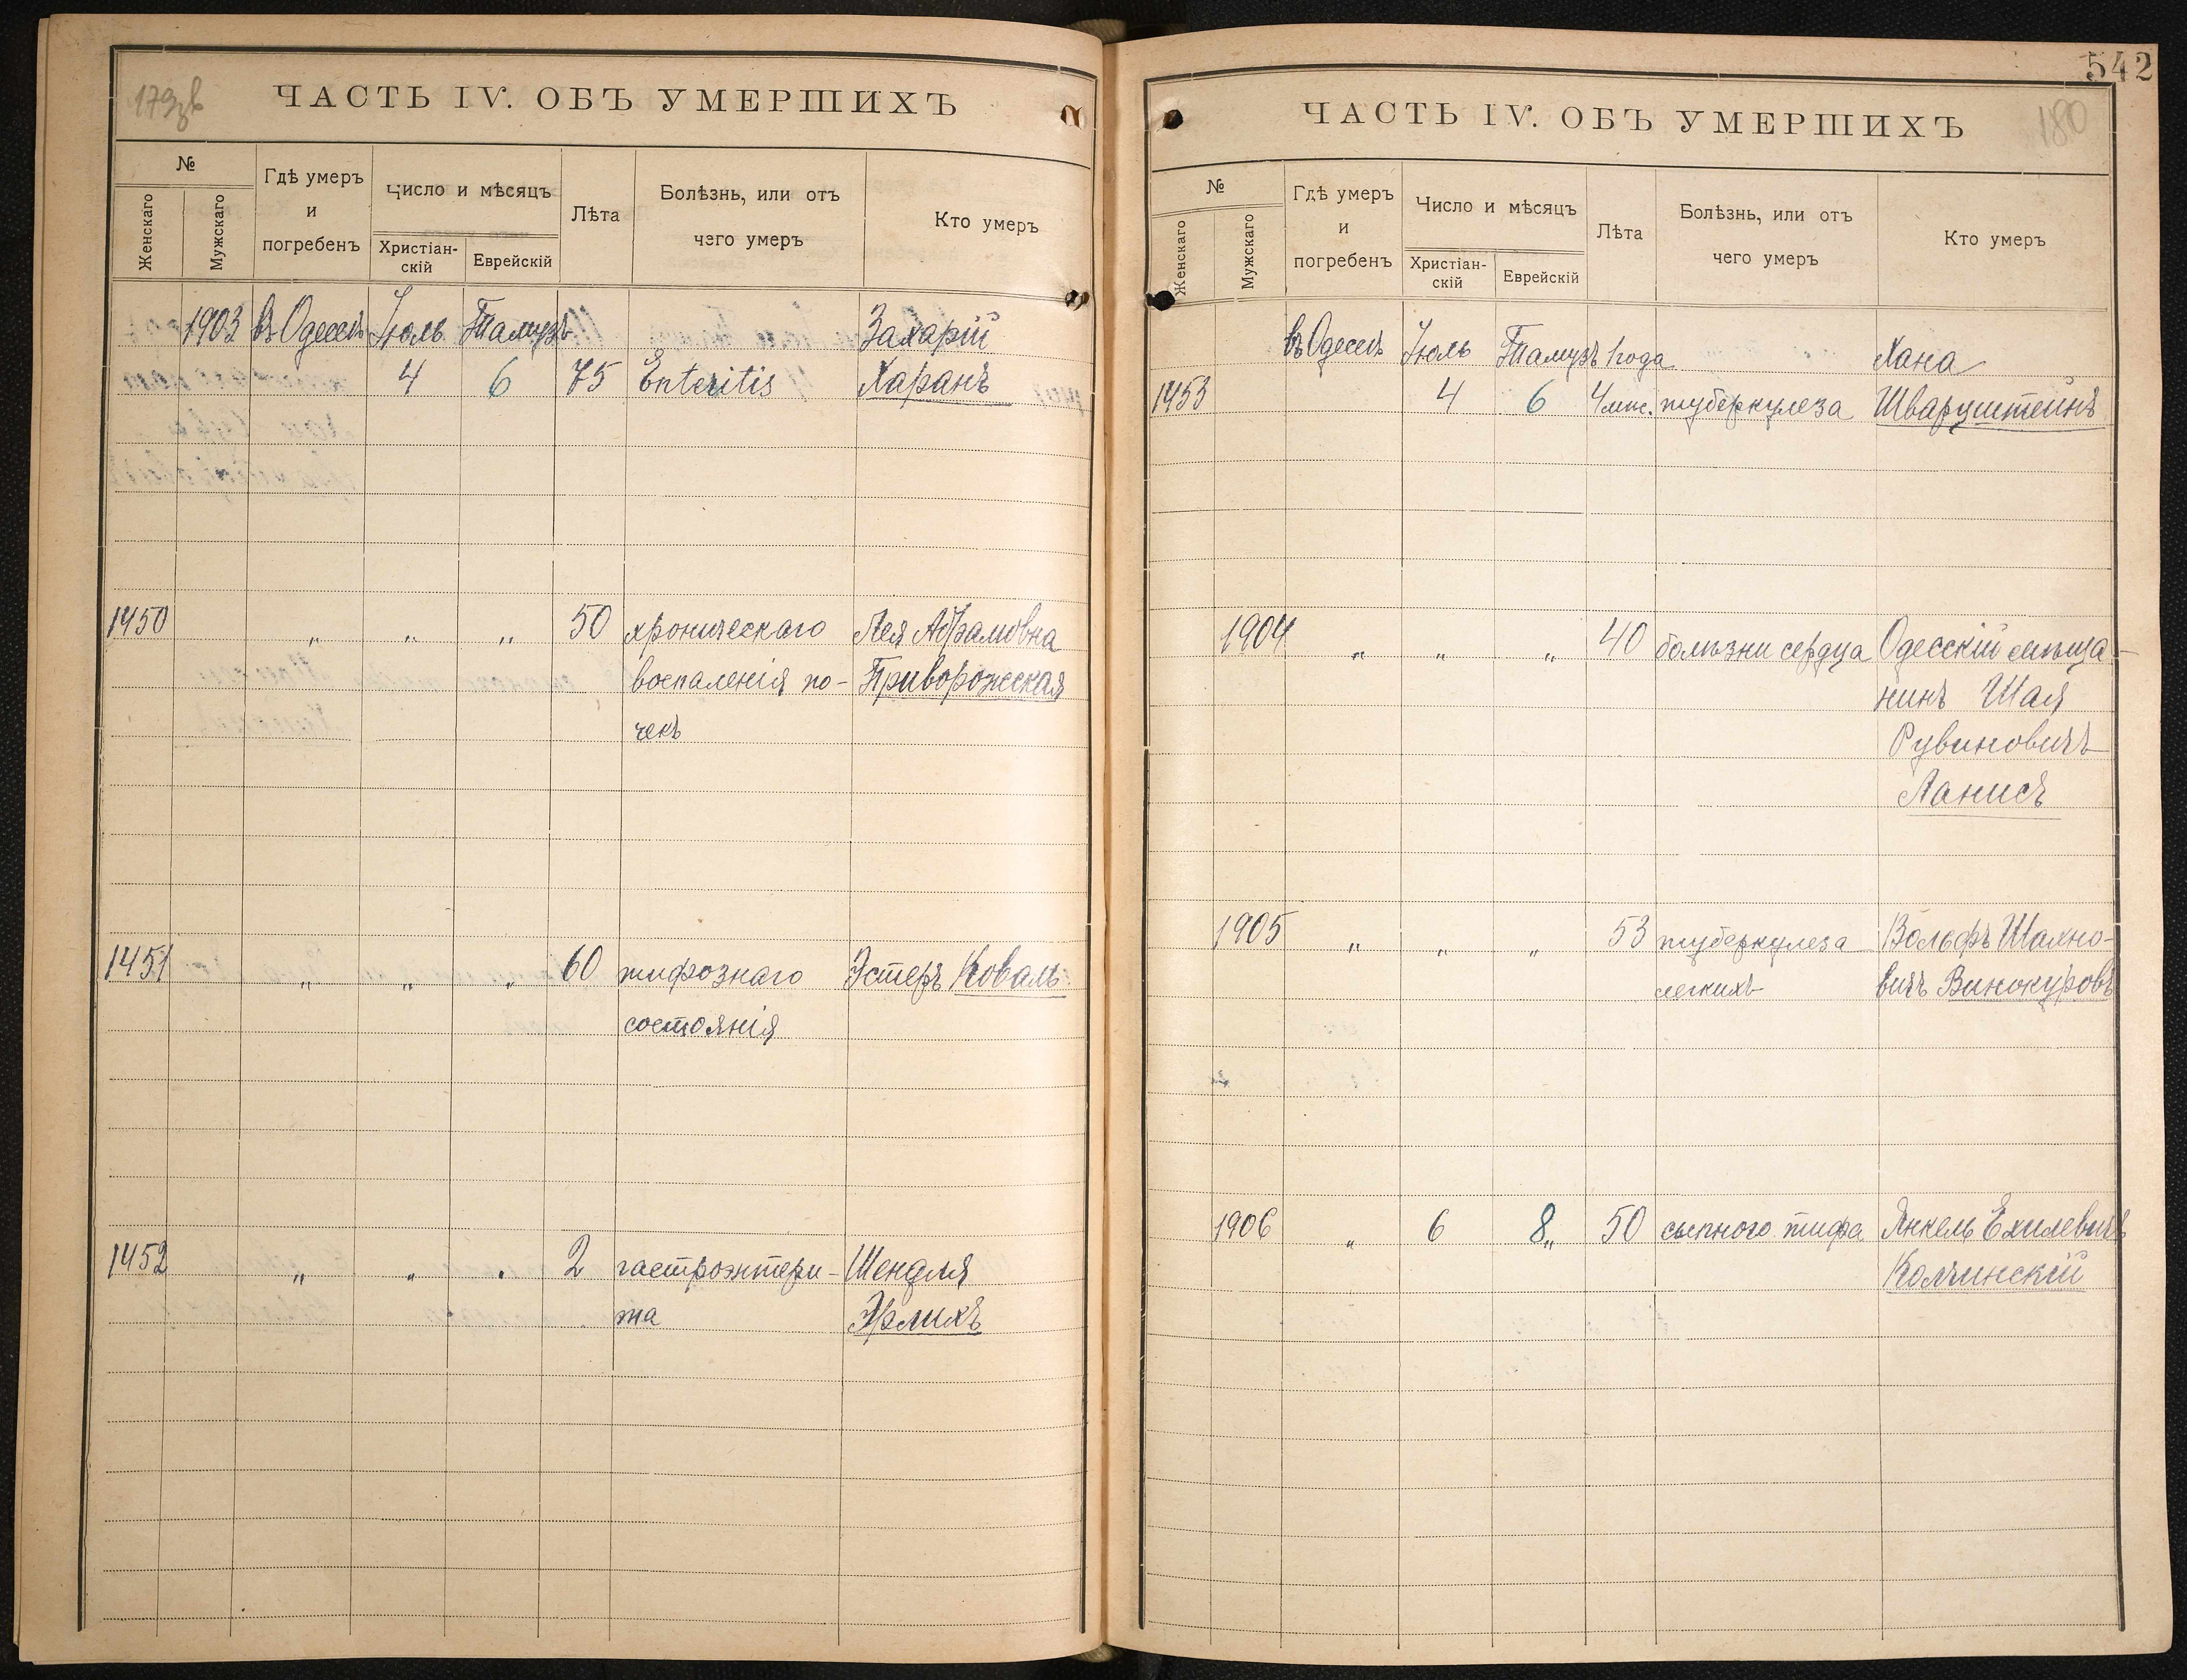 179 зв
ЧАСТЬ IV. ОБЪ УМЕРШИХЪ
№
Женскаго
Мужскаго
Гдѣ умеръ
и
погребенъ
Число и мѣсяцъ
Христіан-
скій
Еврейскій
Лѣта
Болѣзнь, или отъ
чего умеръ
Кто умеръ
1903 въ Одессѣ Іюль Тамузъ Захарій
4 6 75 Enteritis Харанъ
1450 " " " 50 хроническаго Лея Абрамовна
воспаленія по- Приворожская
чекъ
1451 " " " 60 тифознаго Эстеръ Коваль
состоянія
1452 " " " 2 гастроэнтери- Шендля
та Эрлихъ
542
180
ЧАСТЬ IV. ОБЪ УМЕРШИХЪ
№
Женскаго
Мужскаго
Гдѣ умеръ
и
погребенъ
Число и мѣсяцъ
Христіан-
скій
Еврейскій
Лѣта
Болѣзнь, или отъ
чего умеръ
Кто умеръ
въ Одессѣ Іюль Тамузъ 1 года Хана
1453 4 6 4 мѣс. туберкулеза Шварцштейнъ
1904 " " " 40 болѣзни сердца Одесскій мѣща-
нинъ Шая
Рувиновичъ
Ланисъ
1905 " " " 53 туберкулеза Вольфъ Шахно-
легкихъ вичъ Винокуровъ
1906 " 6 8 " 50 сыпного тифа Янкель Ехилевичъ
Колчинскій